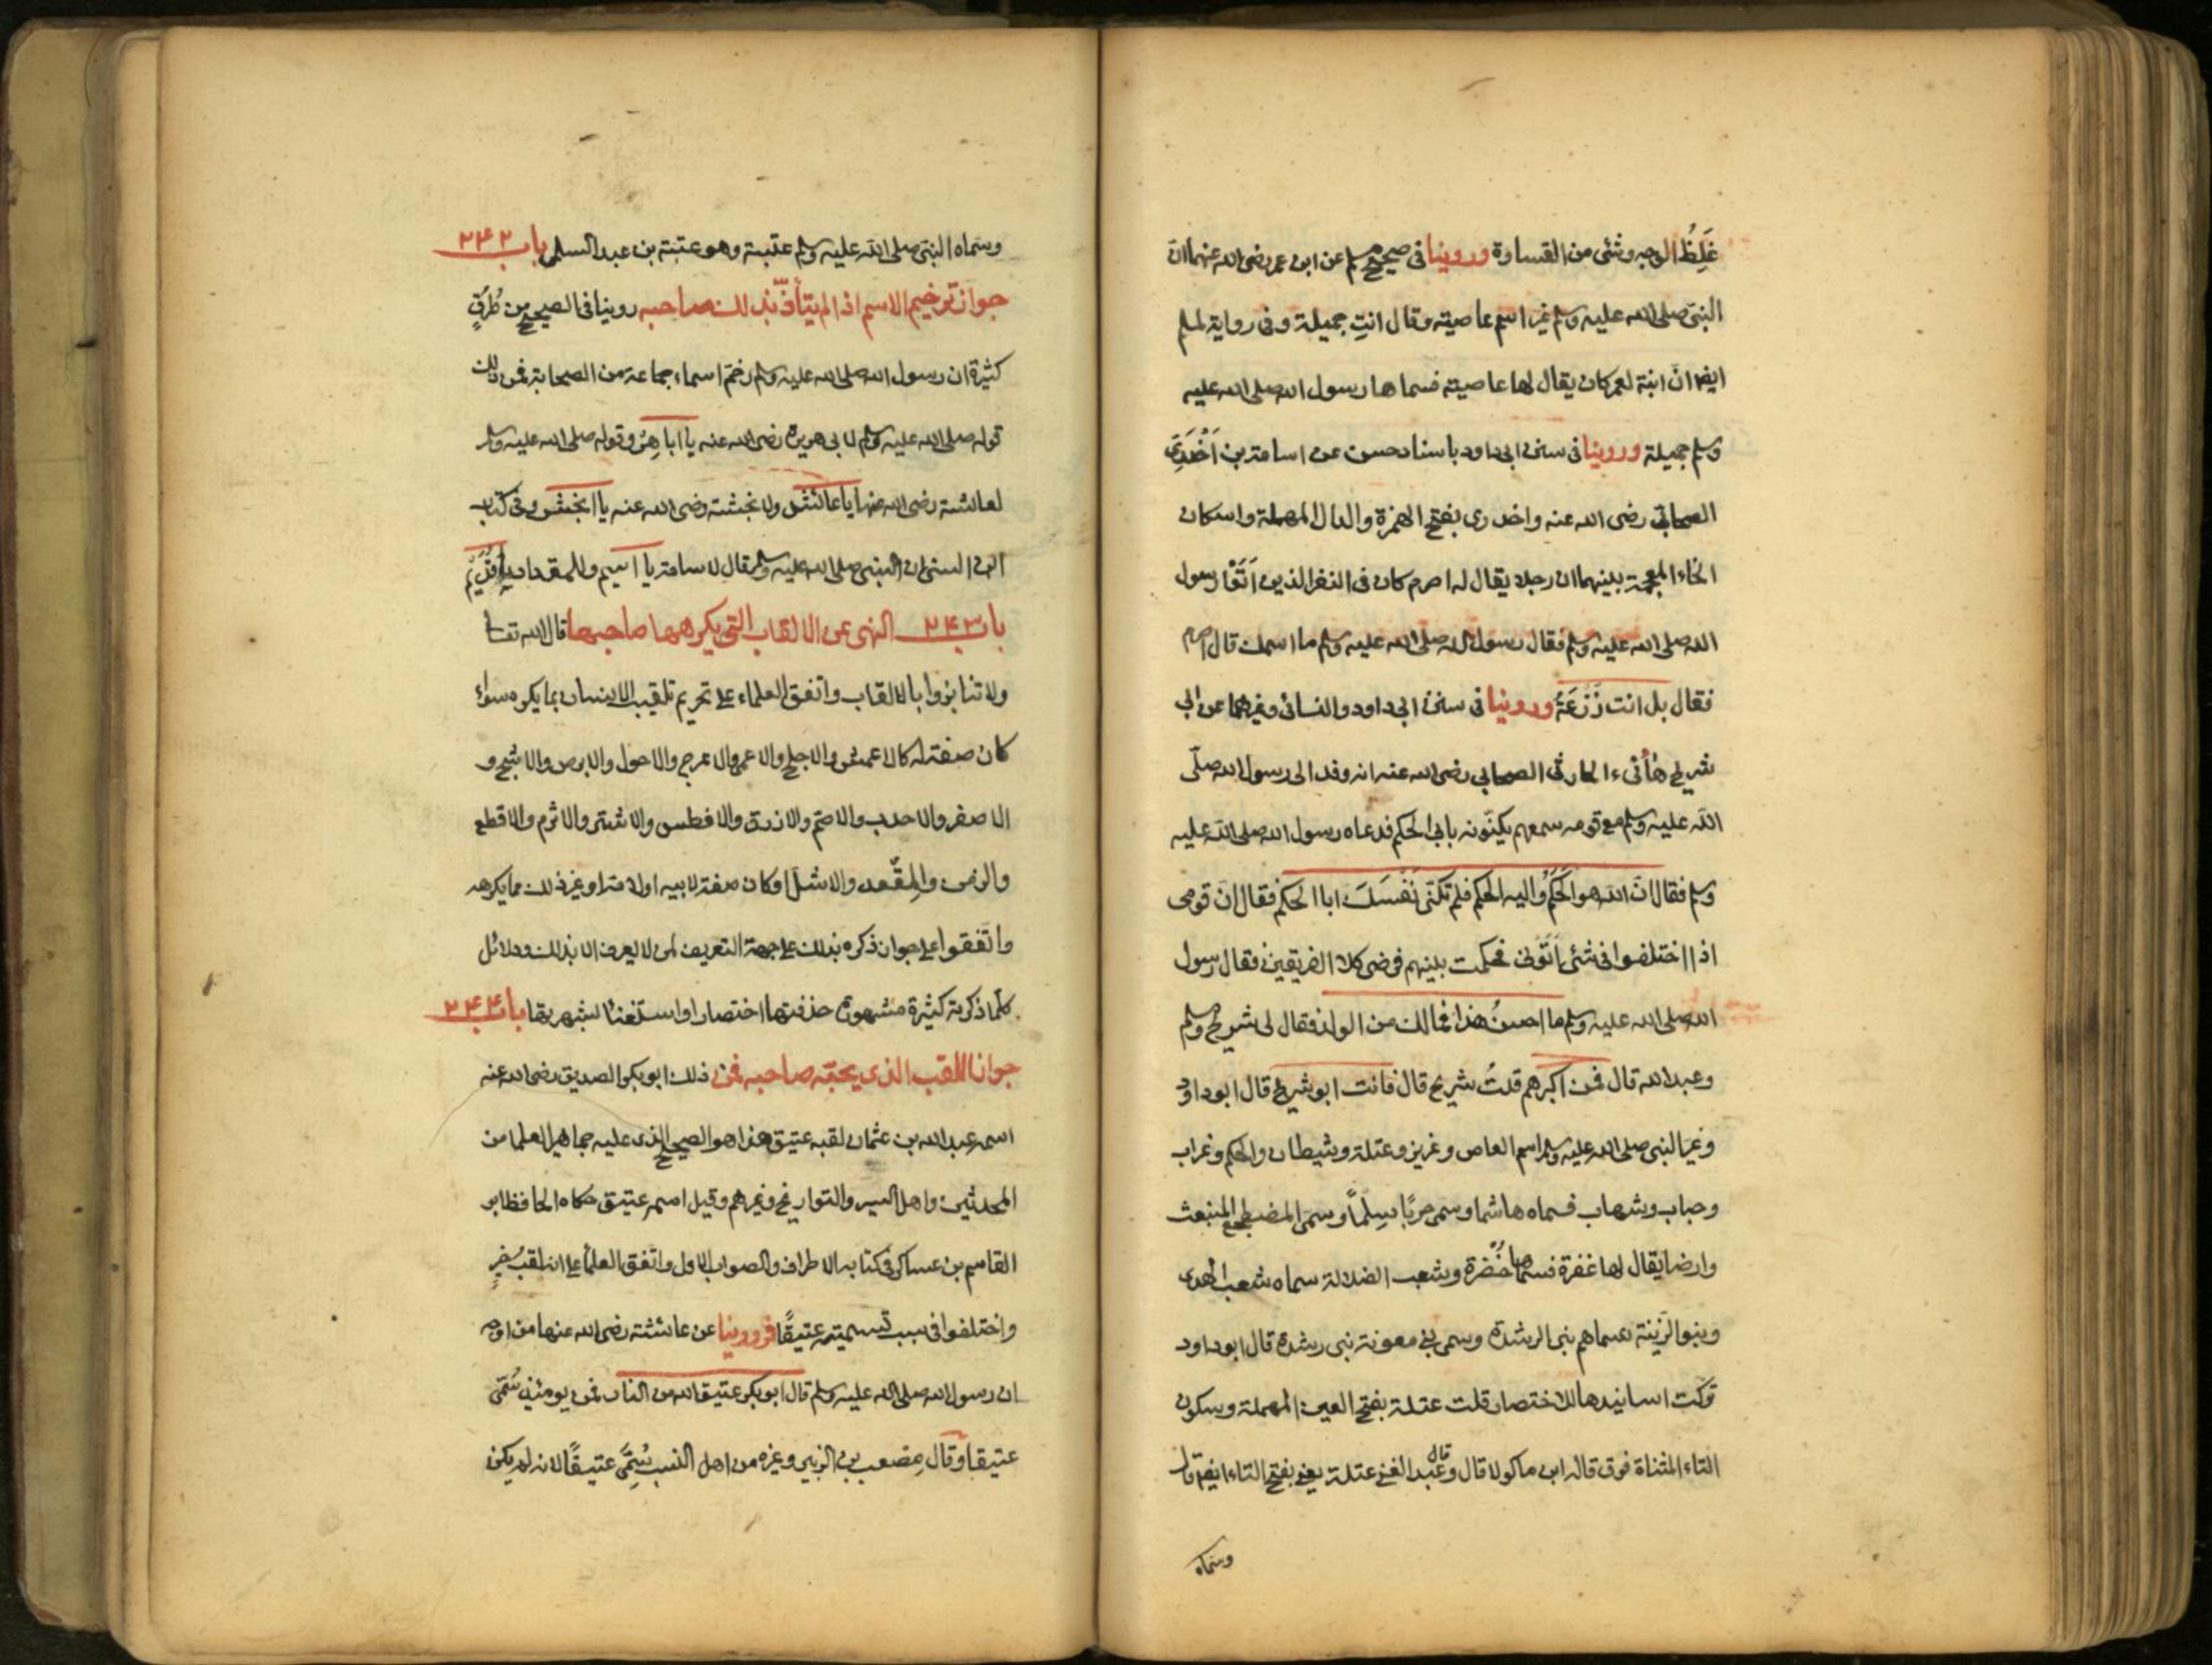 غَلِظُ الوجه وشئ من القساوة وروينا فى صحيح مسلم عن ابن عمر رضى الله عنهما ان
النبى صلى الله عليه وسلم غير اسم عاصية وقال انتِ جميلة وفى رواية لمسلم
ايضا انّ ابنة لعمر كان يقال لها عاصية فسماها رسول الله صلى الله عليه
وسلم جميلة وروينا فى سنن ابى داود باسناد حسن عن اسامة بن اَخْدَرِى
الصحابى رضى الله عنه واخدرى بفتح الهمزة والدال المهملة واسكان
الخاء المعجمة بينهما ان رجلا يقال له اصرم كان فى النفر الذين اَتَوْا رسول
الله صلى الله عليه وسلم فقال رسول الله صلى الله عليه وسلم ما اسمك قال اصرم
فقال بل انت زُرْعَةُ وروينا فى سنن ابى داود والنسائى وغيرهما عن ابى
شريح هُأنىء الحارثى الصحابى رضى الله عنه انه وفد الى رسول الله صلّى
الله عليه وسلم مع قومه سمعهم يكنّونه بابى الحكم فدعاه رسول الله صلى الله عليه
وسلم فقال انّ الله هو الحَكَمُ واليه الحكم فلم تكنّى نَفْسَكَ ابا الحكم فقال ان قومى
اذا اختلفوا فى شئ اتَوْنى فحكمت بينهم فرضى كلا الفريقين فقال رسول
الله صلى الله عليه وسلم ما احسنُ هذا فمالك من الولد فقال لى شريح ومسلم
وعبد الله قال فمن اكبرهم قلتُ شريح قال فانت ابو شريح قال ابو داود
وغيّر النبى صلى الله عليه وسلم اسم العاص وعزيز وعتلة وشيطان والحكم وغراب
وحباب وشهاب فسماه هاشما وسمى حربًا سِلماً وسمى المضطجع المنبعث
وارضا يقال لها غفرة فسماها خَضرة وشعب الضلالة سماه شعب الهدى
وبنو الزَنية سماهم بنى الرشدة وسمى بنى مغوية بنى رشدة قال ابو داود
تركت اسانيدها للاختصار قلت عتلة بفتح العين المهملة وسكون
التاء المثناة فوق قاله ابن ماكولا قال وقال عبد الغنى عتلة يعنى بفتح التاء ايضا قال
وسماه
وسماه النبى صلى الله عليه وسلم عتبة وهو عتبة بن عبد السلمى باب ٢٤٢
جواز ترخيم الاسم اذا لم يتأذّ بذلك صاحبه روينا فى الصحيح من طُرُقٍ
كثيرة ان رسول الله صلى الله عليه وسلم رخم اسماء جماعة من الصحابة فمن ذلك
قوله صلى الله عليه وسلم لابى هريرة رضى الله عنه يا ابا هِرّ وقوله صلى الله عليه وسلم
لعائشة رضى الله عنها يا عائش ولانجشة رضى الله عنه يا انجش وفى كتاب
ابن السنى ان النبى صلى الله عليه وسلم قال لاسامة يا اسيم وللمقداد يا قُدَيْم
باب ٢٤٣ النهى عن الالقاب التى يكرهها صاحبها قال الله تعالى
ولا تنابزوا بالالقاب واتفق العلماء على تحريم تلقيب الانسان بما يكره سواء
كان صفة له كالاعمش والاجلح والاعمى والاعرج والاحول والابرص والاشج و
الاصفر والاحدب والاصّم والازرق والافطس والاشتر والاثرم والاقطع
والزمن والمقعد والاشلّ او كان صفة لابيه او لامه او غير ذلك مما يكرهه
واتفقوا على جواز ذكره بذلك على جهة التعريف لمن لا يعرف الا بذلك ودلائل
كلّما ذكرته كثيرة مشهورة حذفتها اختصارا واستغناء لشهرتها باب ٢٤٤
جواز اللقب الذى يحبّه صاحبه فمن ذلك ابو بكر الصديق رضى الله عنه
اسمه عبد الله بن عثمان لقبه عتيق هذا هو الصحيح الذى عليه جماهير العلما من
المحدثين واهل السير والتواريخ وغيرهم وقيل اسمه عتيق حكاه الحافظ ابو
القاسم بن عساكر فى كتابه الاطراف والصواب الاول واتفق العلماء على انه لقب خيرٍ
واختلفوا فى سبب تسميته عتيقًا فروينا عن عائشة رضى الله عنها من اوجه
ان رسول الله صلى الله عليه وسلم قال ابو بكر عتيق الله من النار فمن يومئذٍ سُمّى
عتيقا وقال مصعب بن الزبير وغيره من اهل النسب سُمّى عتيقًا لانه لم يكن